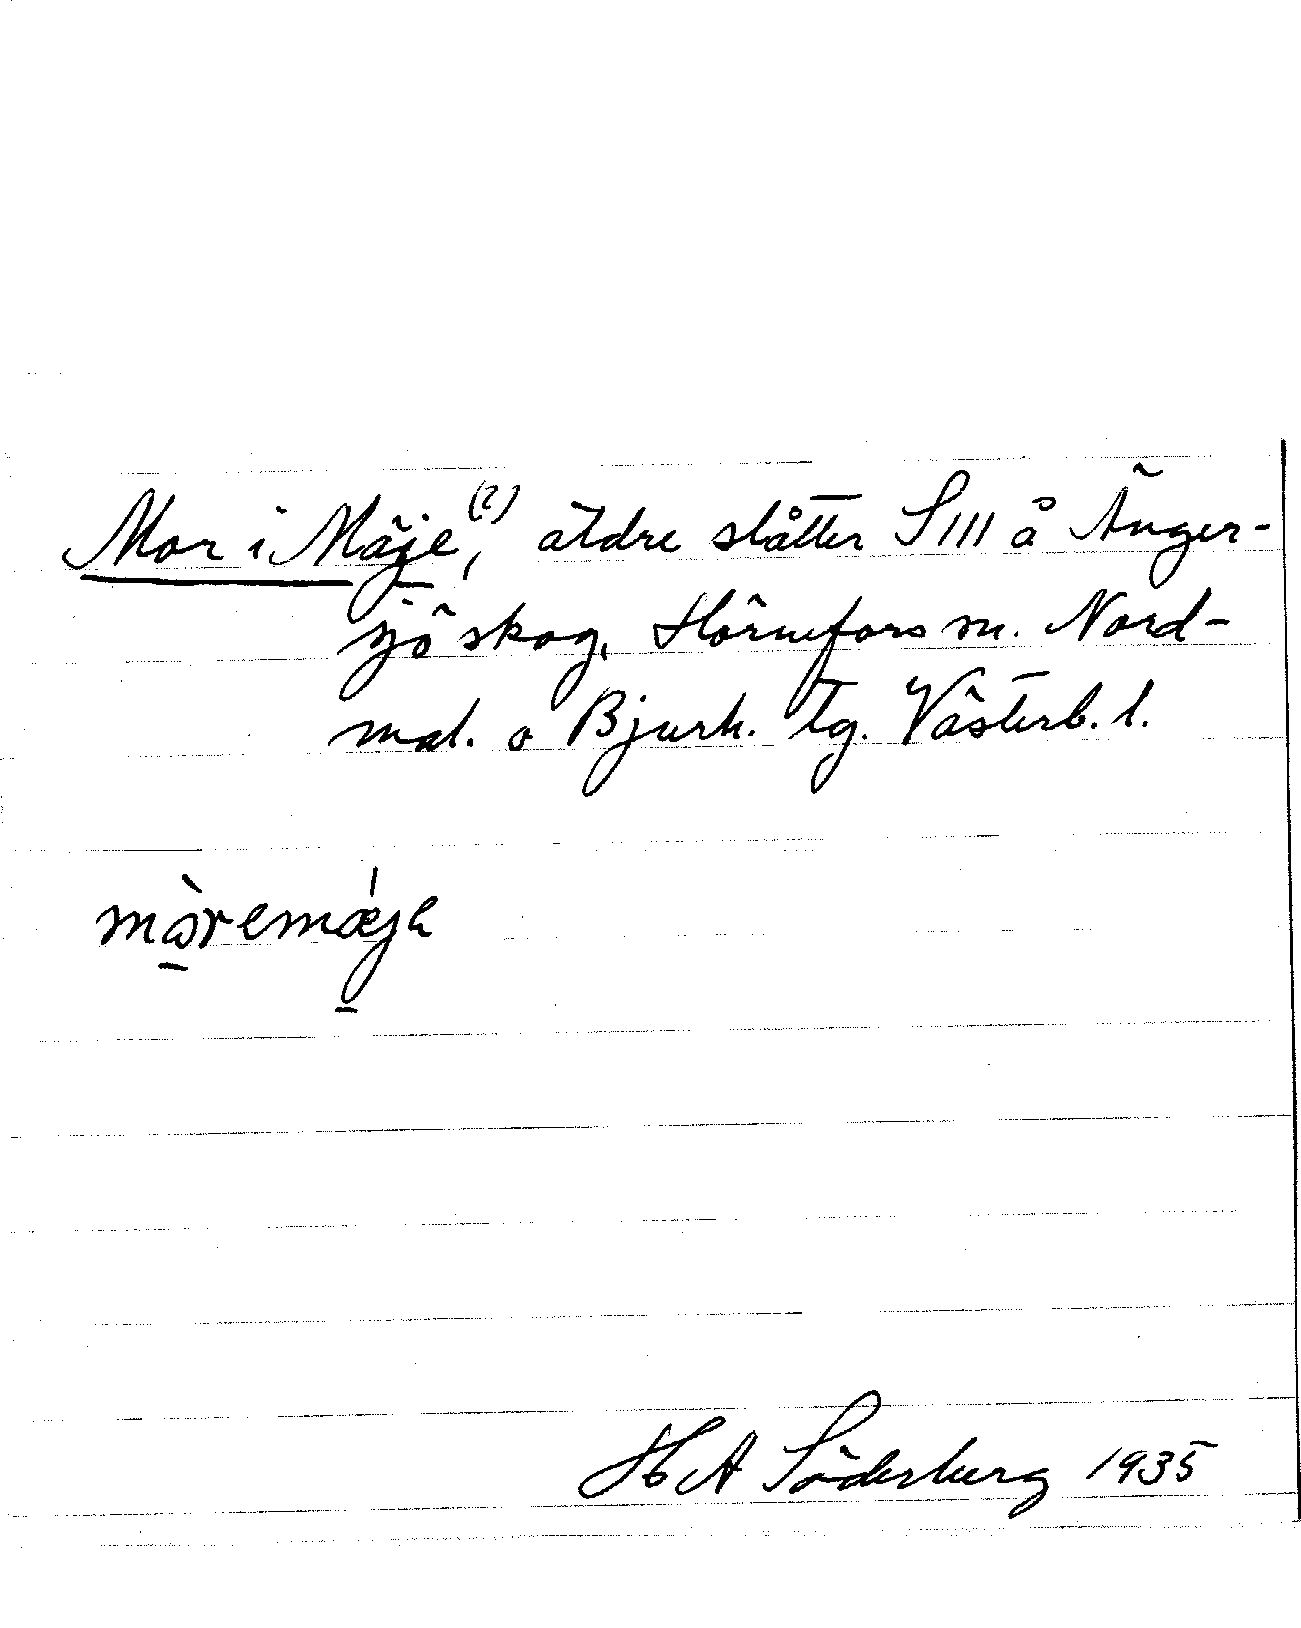 Mor i Mäje(?), äldre slåtter S III å Änger-
sjö skog, Hörnefors sn. Nord-
mal. o Bjurh. tg. Västerb. l.
mòremæ´jɑ
H A Söderberg 1935